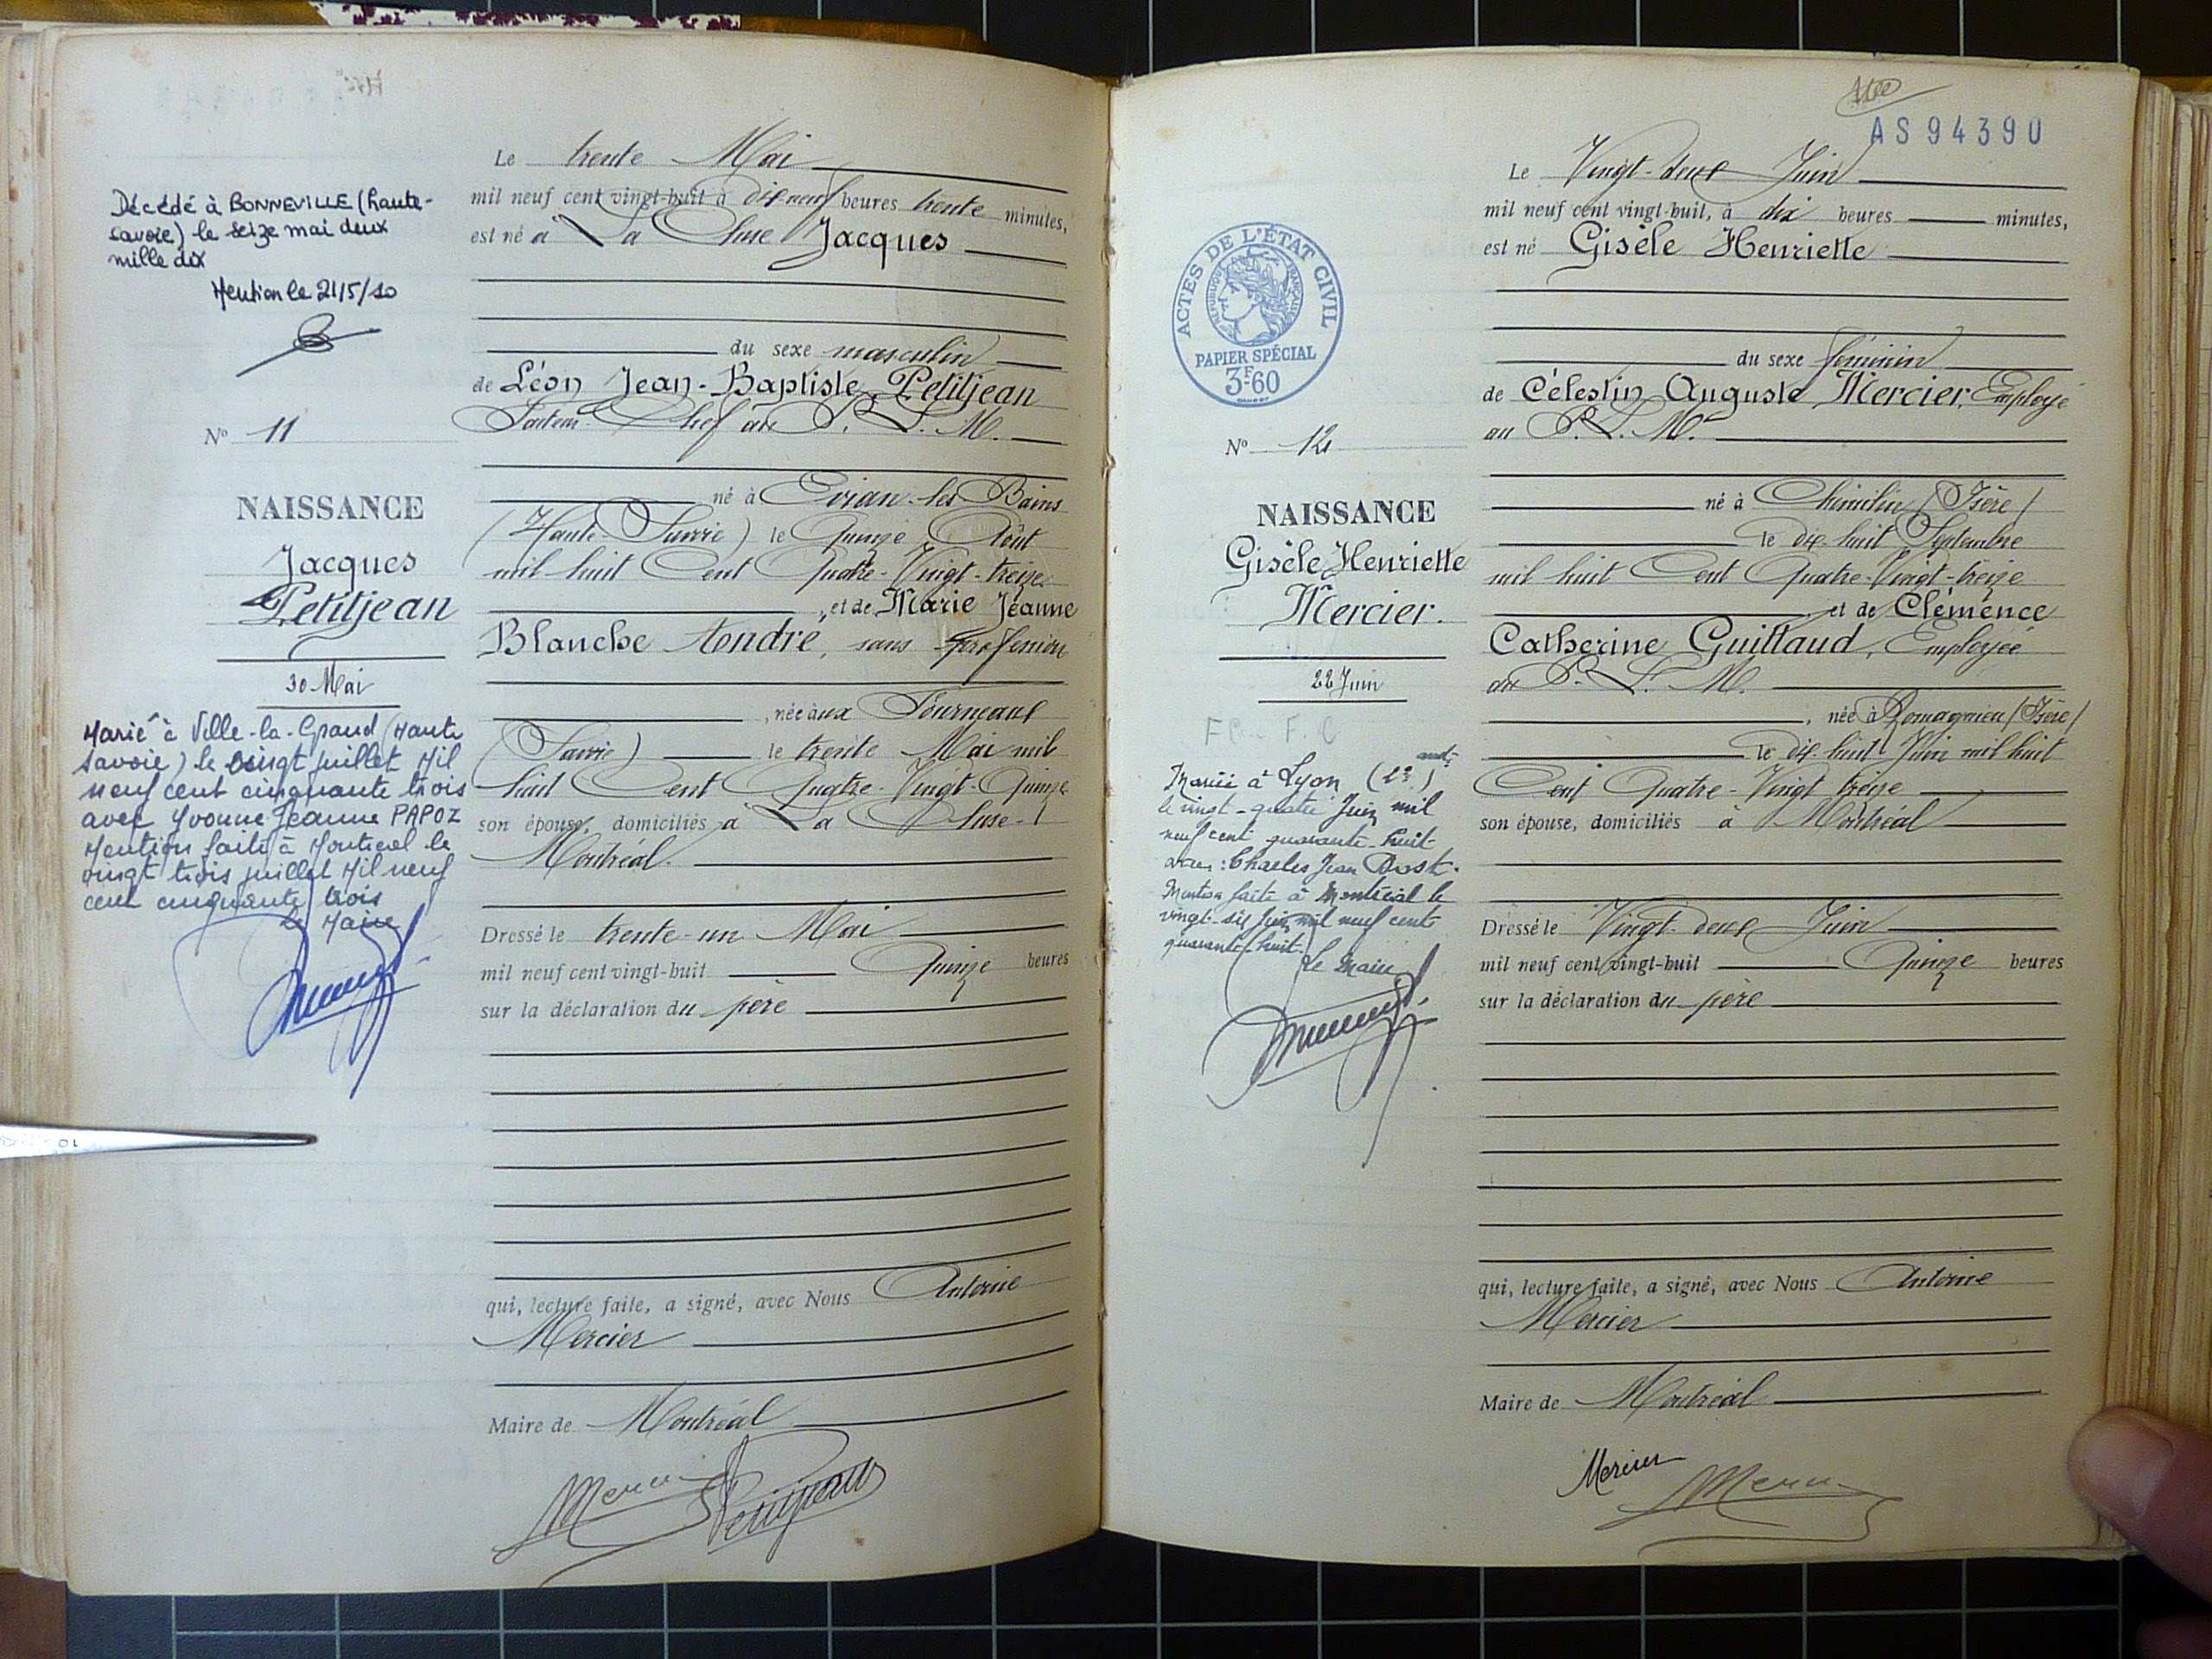 Décédé à BONNEVILLE (haute-
savoie) le seize mai deux
mille dix
Mention le 21/5/10
N° 11
NAISSANCE
Jacques
Petitjean
30 Mai
Marié à Ville-la-Grand (Haute
Savoie) le vingt juillet Mil
neuf cent cinquante trois
avec Yvonne Jeanne PAPOZ
Mention faite à Montréal le
vingt trois juillet Mil neuf
cent cinquante trois
le Maire
Le trente Mai
mil neuf cent vingt-huit à dix-neuf heures trente minutes,
est né à La Cluse Jacques
du sexe masculin
de Léon Jean-Baptiste Petitjean
Facteur-Chef au P. L. M.
né à Evian-les-Bains
(Haute-Savoie) le Quinze Août
mil-huit Cent Quatre-Vingt-treize
, et de Marie Jeanne
Blanche André, sans profession
, née aux Fourneaux
(Savoie) le trente Mai mil
huit Cent Quatre-Vingt-Quinze
son épouse, domiciliés à La Cluse-
Montréal.
Dressé le trente-un Mai
mil neuf cent vingt-huit Quinze heures
sur la déclaration du père
qui, lecture faite, a signé, avec Nous Antoine
Mercier
Maire de Montréal
Mercier Petitjean
AS94390
ACTES DE L'ÉTAT CIVIL
RÉPUBLIQUE FRANÇAISE
PAPIER SPÉCIAL
3F60
N° 12
NAISSANCE
Gisèle Henriette
Mercier.
22 Juin
Mariée à Lyon (2e) ardt
le vingt-quatre Juin mil
neuf cent quarante-huit
avec : Charles Jean Dost.
Mention faite à Montréal le
vingt-six Juin mil neuf cent
quarante-huit.
le Maire
Le Vingt-deux Juin
mil neuf cent vingt-huit, à dix heures minutes,
est né Gisèle Henriette
du sexe féminin
de Célestin Auguste Mercier, Employé
au P. L. M.
né à Chimilin (Isère)
le dix-huit Septembre
mil huit Cent Quatre-Vingt-treize
et de Clémence
Catherine Guittaud, Employée
du P. L. M.
, née à Romagnieu (Isère)
le dix-huit Juin mil huit
Cent Quatre-Vingt treize
son épouse, domiciliés à Montréal
Dressé le Vingt-deux Juin
mil neuf cent vingt-huit Quinze heures
sur la déclaration du père
qui, lecture faite, a signé, avec Nous Antoine
Mercier
Maire de Montréal
Mercier Mercier